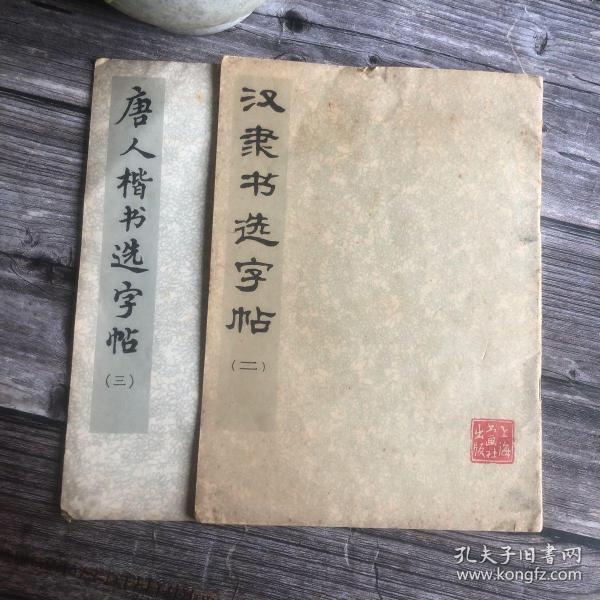 唐人楷书选字帖
（三）
汉隶书选字帖
（二）
上海
书画社
出版
孔夫子旧书网
www.kongfz.com